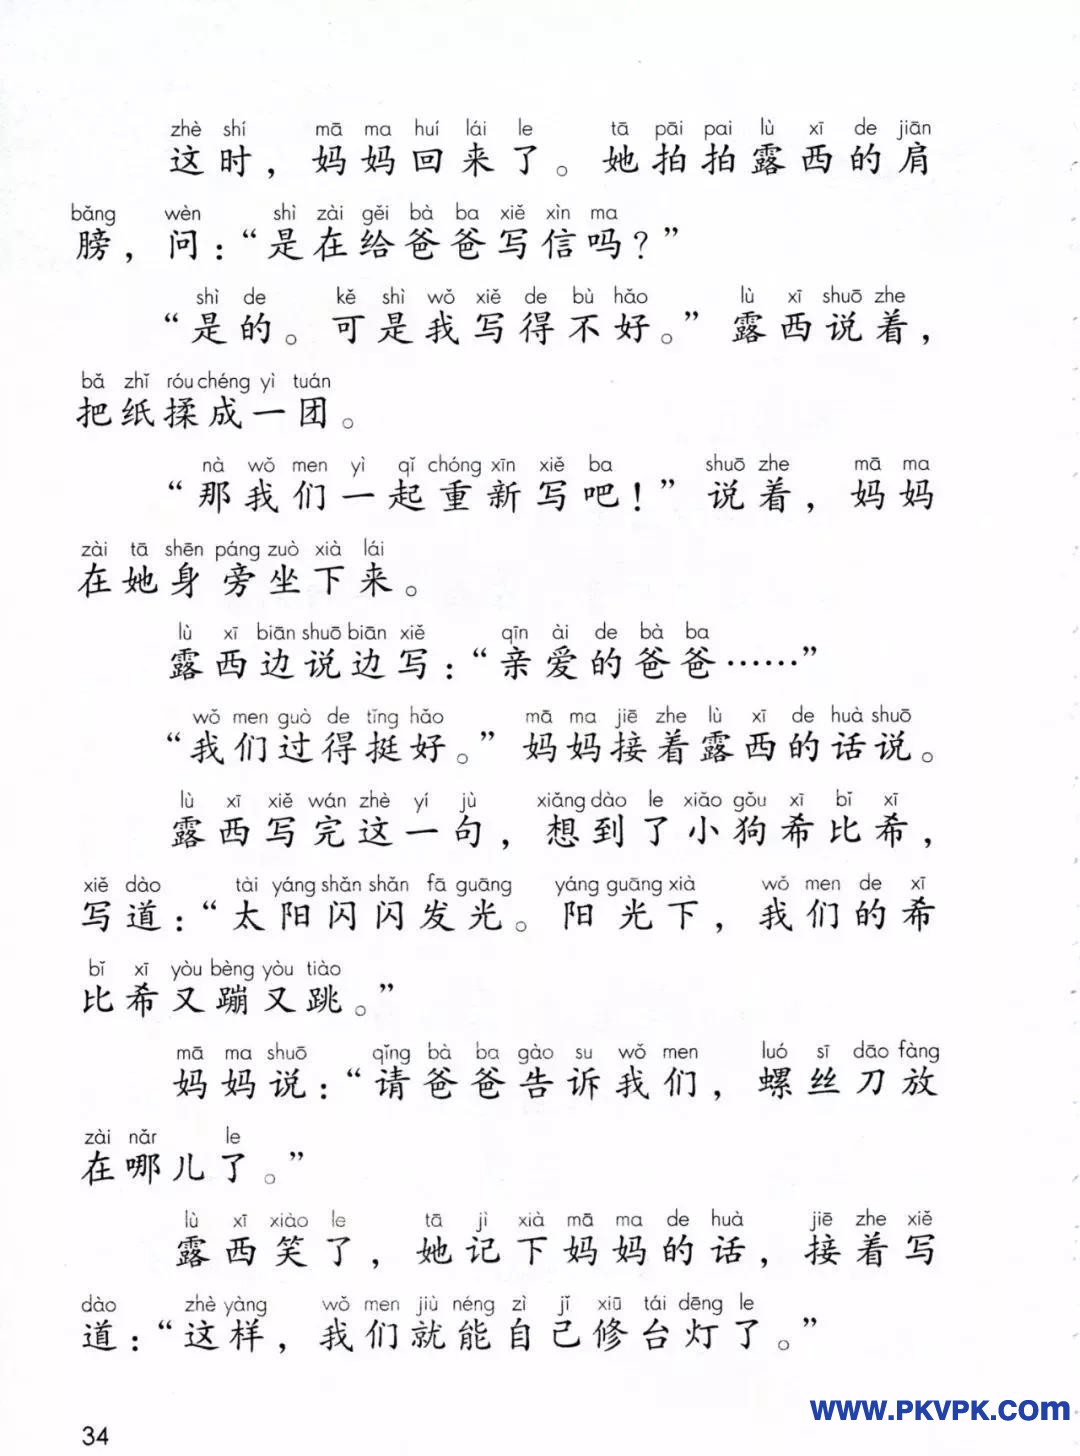 zhè shí mā ma huí lái le tā pāi pai lù xī de jiān
这时，妈妈回来了。她拍拍露西的肩
bǎng wèn shì zài gěi bà ba xiě xìn ma
膀，问：“是在给爸爸写信吗？”
shì de kě shì wǒ xiě de bù hǎo lù xī shuō zhe
“是的。可是我写得不好。”露西说着，
bǎ zhǐ róu chéng yì tuán
把纸揉成一团。
nà wǒ men yì qǐ chóng xīn xiě ba shuō zhe mā ma
“那我们一起重新写吧！”说着，妈妈
zài tā shēn páng zuò xià lái
在她身旁坐下来。
lù xī biān shuō biān xiě qīn ài de bà ba
露西边说边写：“亲爱的爸爸……”
wǒ men guò de tǐng hǎo mā ma jiē zhe lù xī de huà shuō
“我们过得挺好。”妈妈接着露西的话说。
lù xī xiě wán zhè yí jù xiǎng dào le xiǎo gǒu xī bǐ xī
露西写完这一句，想到了小狗希比希，
xiě dào tài yáng shǎn shǎn fā guāng yáng guāng xià wǒ men de xī
写道：“太阳闪闪发光。阳光下，我们的希
bǐ xī yòu bèng yòu tiào
比希又蹦又跳。”
mā ma shuō qǐng bà ba gào su wǒ men luó sī dāo fàng
妈妈说：“请爸爸告诉我们，螺丝刀放
zài nǎr le
在哪儿了。”
lù xī xiào le tā jì xià mā ma de huà jiē zhe xiě
露西笑了，她记下妈妈的话，接着写
dào zhè yàng wǒ men jiù néng zì jǐ xiū tái dēng le
道：“这样，我们就能自己修台灯了。”
www.PKVPK.com
34